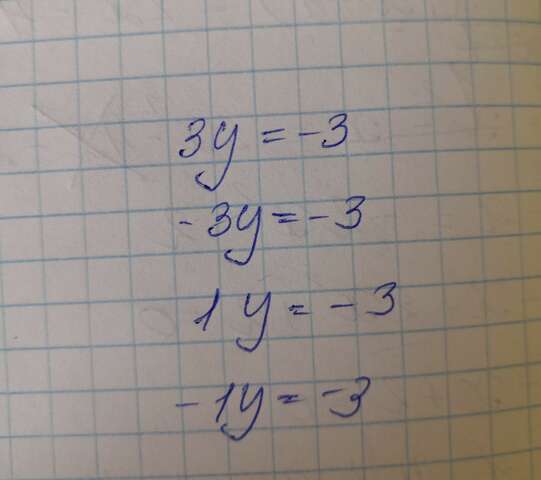 3y = -3
-3y = -3
1y = -3
-1y = -3